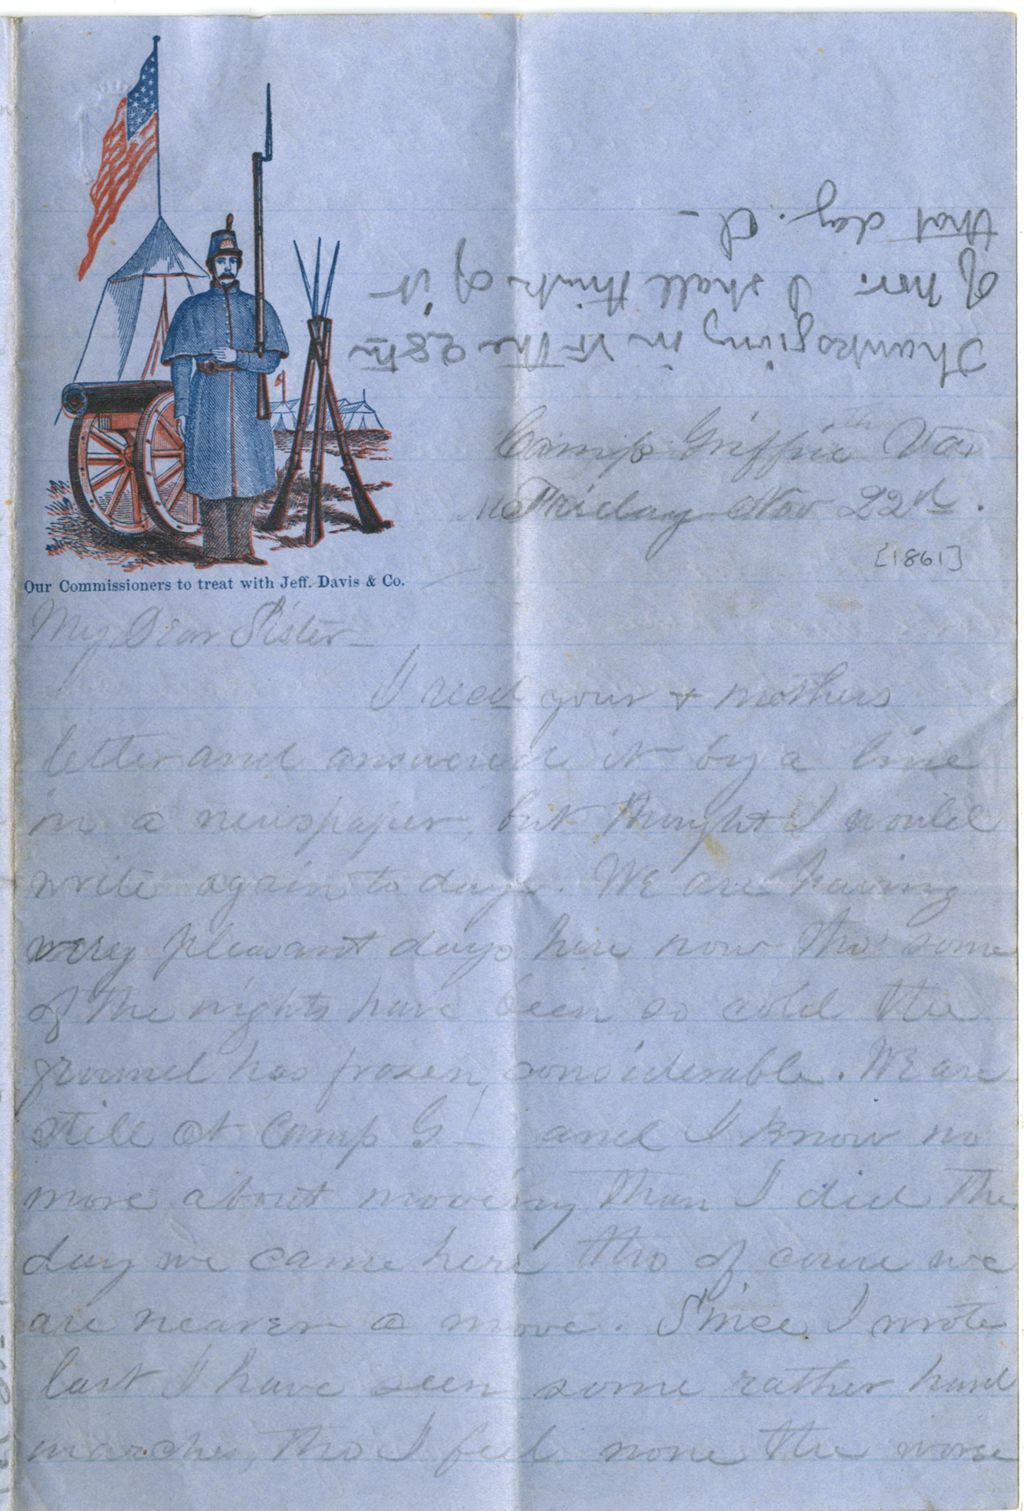 Thanksgiving in Vt the 28th
of Nov. I shall think of it
that day. C—
Camp Griffin Va.
Friday Nov 22d.
[1861]
Our Commissioners to treat with Jeff. Davis & Co.
My Dear Sister—
I recd your & mothers
letter and answered it by a line
in a newspaper, but thought I would
write again to day. We are having
very pleasant days here now tho some
of the nights have been so cold the
ground has frozen, considerable. We are
still at Camp G— and I know no
more about moving than I did the
day we came here tho of course we
are nearer a move. Since I wrote
last I have seen some rather hard
marches, tho I feel none the worse